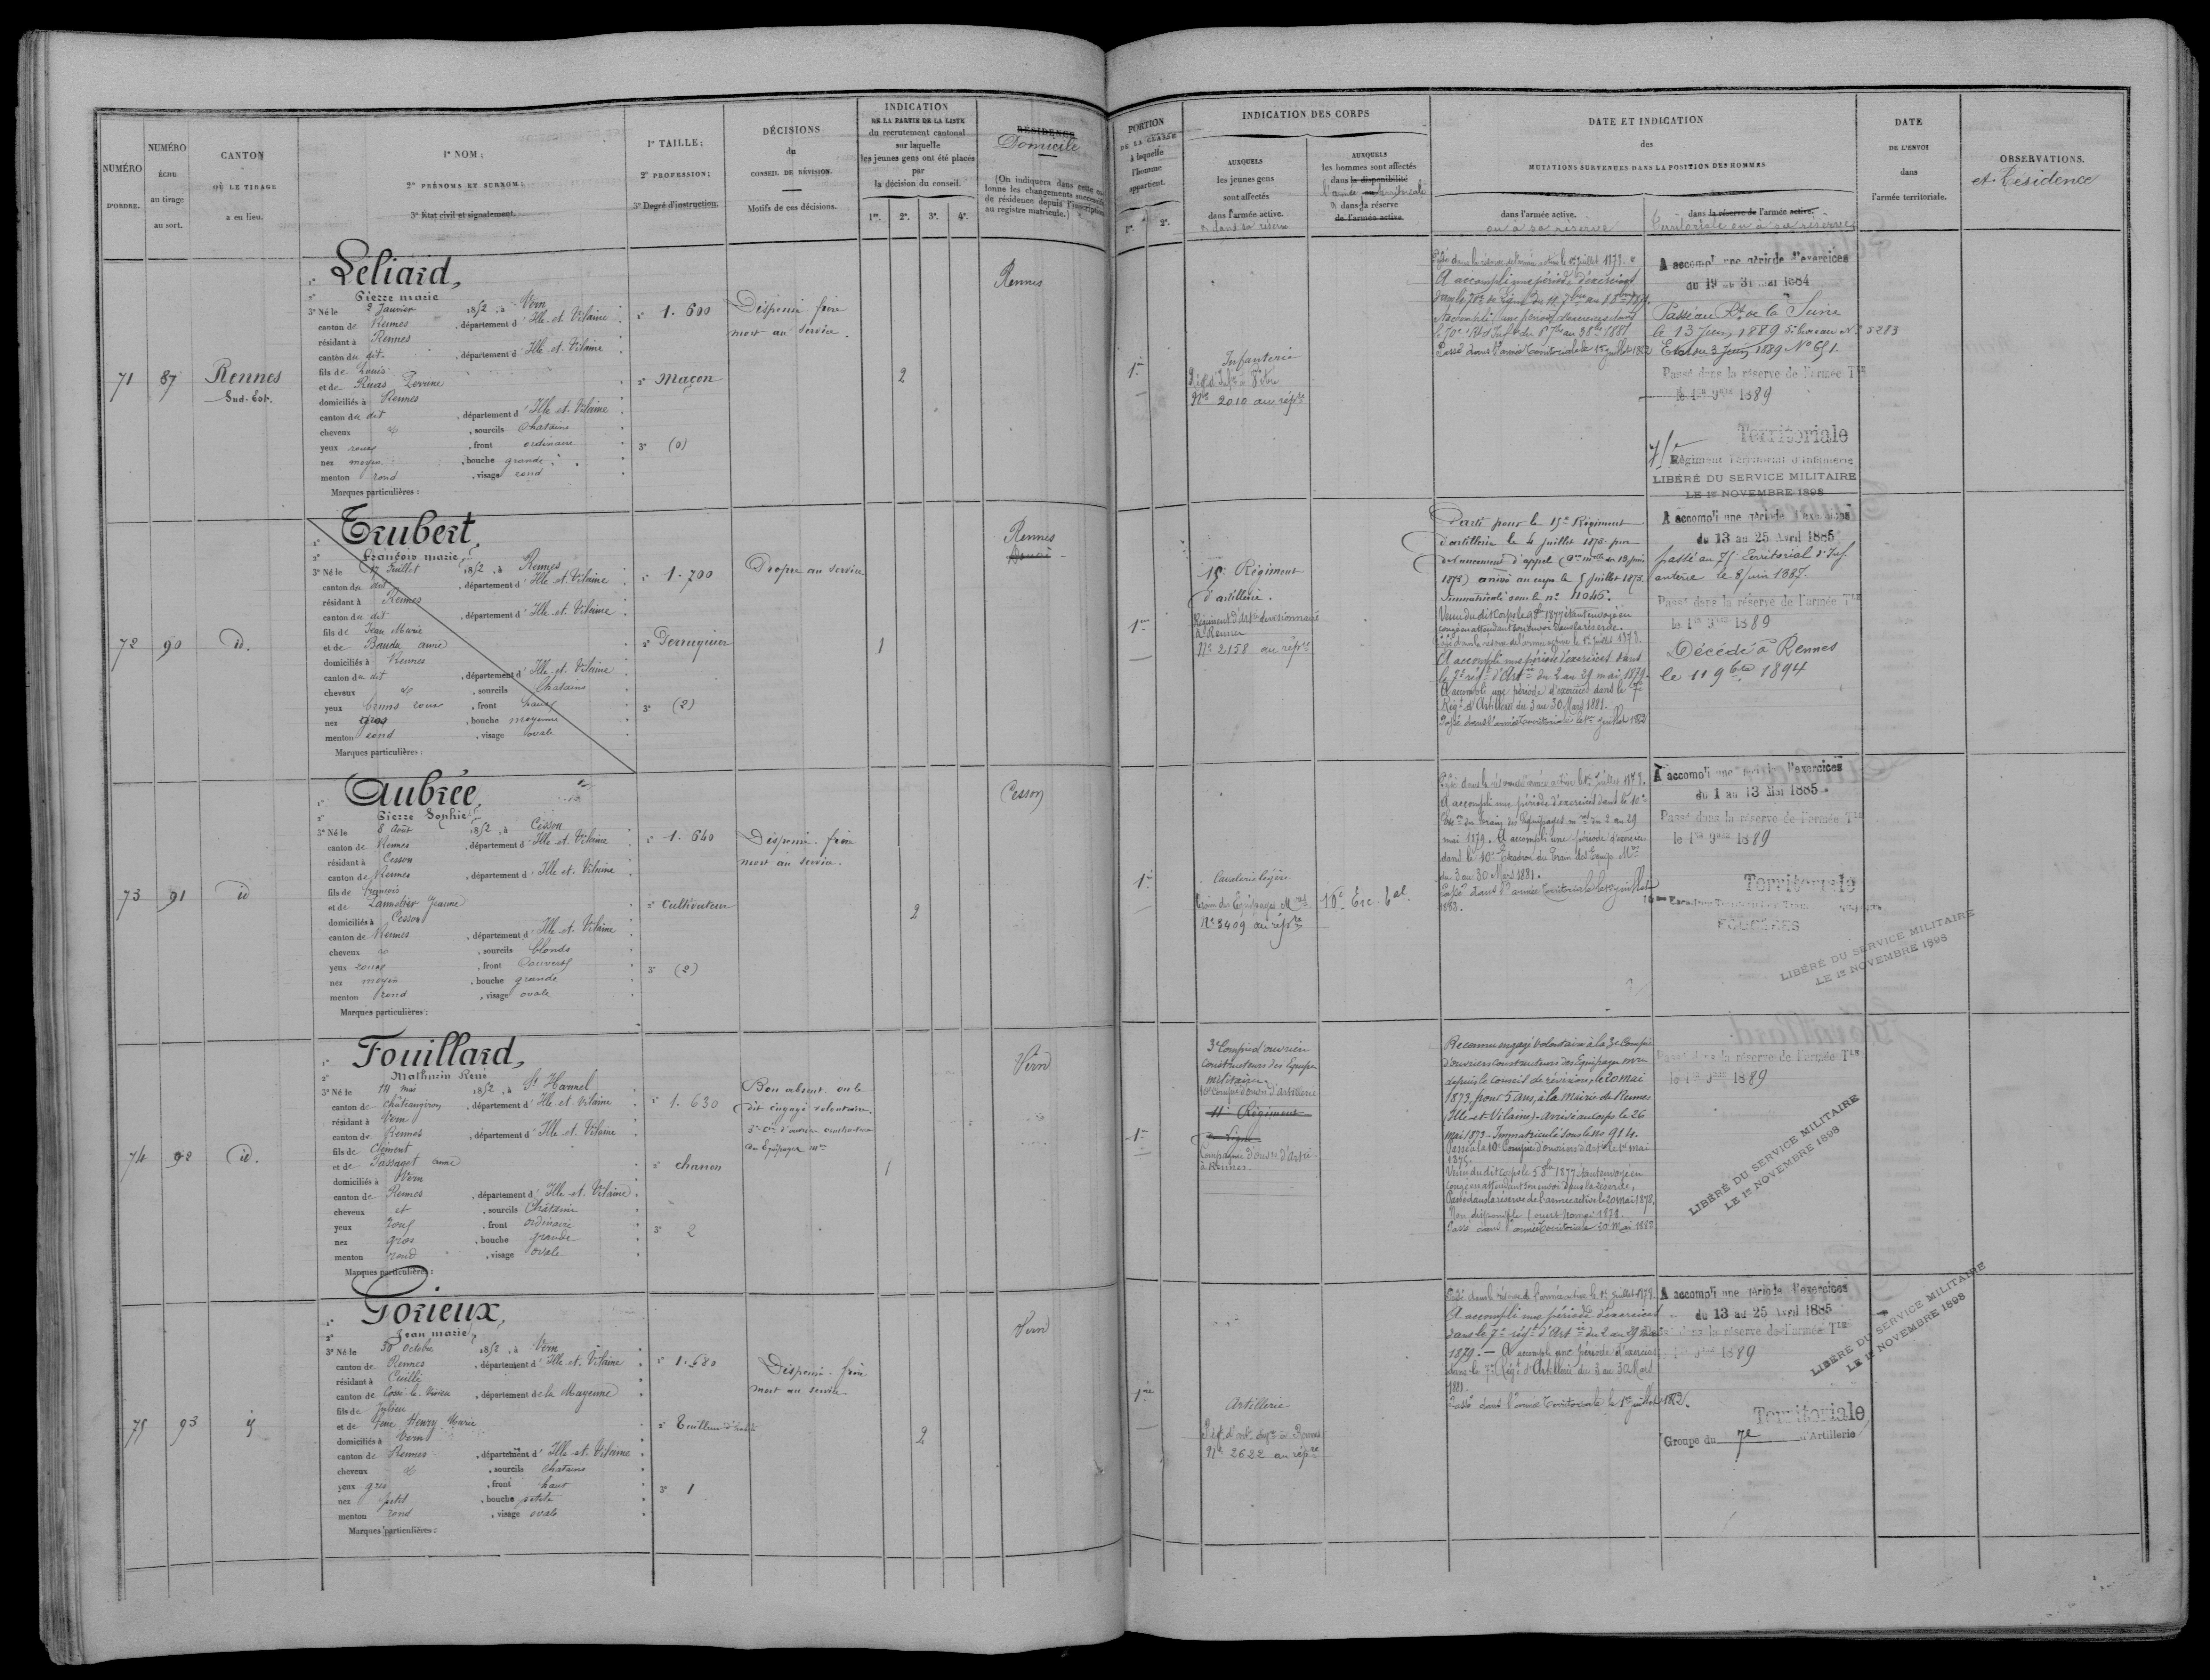 NUMÉRO
D'ORDRE.
NUMÉRO
ÉCHU
au tirage
au sort.
CANTON
OÙ LE TIRAGE
a eu lieu.
1° NOM;
2° PRÉNOMS ET SURNOM;
3° État civil et signalement.
1° TAILLE;
2° PROFESSION;
3° Degré d'instruction.
DÉCISIONS
du
CONSEIL DE RÉVISION.
Motifs de ces décisions.
INDICATION
DE LA PARTIE DE LA LISTE
du recrutement cantonal
sur laquelle
les jeunes gens ont été placés
par
la décision du conseil.
1re. 2e. 3e. 4e.
RÉSIDENCE
Domicile
(On indiquera dans cette co-
lonne les changements successifs
de résidence depuis l'inscription
au registre matricule.)
71
87
Rennes
Sud-Est.
Leliard,
2° Pierre marie
3° Né le 2 Janvier 1852, à Vern
canton de Rennes, département d'Ille-et-Vilaine
résidant à Rennes
canton du dit, département d'Ille-et-Vilaine
fils de Louis
et de Ruas Perrine
domiciliés à Rennes
canton du dit, département d'Ille-et-Vilaine
cheveux et, sourcils Chatains
yeux roux, front ordinaire
nez moyen, bouche grande
menton rond, visage rond
Marques particulières:
1° 1.600
2° Maçon
3° (0)
Dispensé frère
mort au service.
2
Rennes
72
90
id.
Trubert,
2° François marie
3° Né le 17 Juillet 1852, à Rennes
canton du dit, département d'Ille-et-Vilaine
résidant à Rennes
canton du dit, département d'Ille-et-Vilaine
fils de Jean Marie
et de Baudu anne
domiciliés à Rennes
canton du dit, département d'Ille-et-Vilaine
cheveux et, sourcils Chatains
yeux bruns roux, front haut
nez gros, bouche moyenne
menton rond, visage ovale
Marques particulières:
1° 1.700
2° Perruquier
3° (2)
Propre au service
1
Rennes
73
91
id
Aubrée,
2° Pierre Sophie
3° Né le 8 Août 1852, à Cesson
canton de Rennes, département d'Ille-et-Vilaine
résidant à Cesson
canton de Rennes, département d'Ille-et-Vilaine
fils de François
et de Lannebier Jeanne
domiciliés à Cesson
canton de Rennes, département d'Ille-et-Vilaine
cheveux et, sourcils blonds
yeux roux, front Couvert
nez moyen, bouche grande
menton rond, visage ovale
Marques particulières:
1° 1.640
2° Cultivateur
3° (2)
Dispensé. frère
mort au service.
2
Cesson
74
92
id.
Fouillard,
2° Mathurin René
3° Né le 14 mai 1852, à St Harmel
canton de Châteaugiron, département d'Ille-et-Vilaine
résidant à Vern
canton de Rennes, département d'Ille-et-Vilaine
fils de Clément
et de Passaget anne
domiciliés à Vern
canton de Rennes, département d'Ille-et-Vilaine
cheveux et, sourcils Châtains
yeux roux, front ordinaire
nez gros, bouche grande
menton rond, visage ovale
Marques particulières:
1° 1.630
2° charron
3° 2
Bon absent. on le
dit engagé volontaire.
3e Cie d'ouvriers constructeurs
des Equipages mres
1
Vern
75
93
Gorieux,
2° Jean marie
3° Né le 30 Octobre 1852, à Vern
canton de Rennes, département d'Ille-et-Vilaine
résidant à Cuillé
canton de Cossé-le-Vivien, département de la Mayenne
fils de Julien
et de feue Henry Marie
domiciliés à Vern
canton de Rennes, département d'Ille-et-Vilaine
cheveux et, sourcils Chatains
yeux gris, front haut
nez petit, bouche petite
menton rond, visage ovale
Marques particulières:
1° 1.680
2° Tailleur d'habits
3° 1
Dispensé. frère
mort au service.
2
Vern
PORTION
DE LA CLASSE
à laquelle
l'homme
appartient.
1re. 2e.
INDICATION DES CORPS
AUXQUELS
les jeunes gens
sont affectés
dans l'armée active.
& dans sa réserve
AUXQUELS
les hommes sont affectés
dans la disponibilité
l'armée territoriale
& dans sa réserve
de l'armée active.
DATE ET INDICATION
des
MUTATIONS SURVENUES DANS LA POSITION DES HOMMES
dans l'armée active.
ou à sa réserve
dans la réserve de l'armée active.
Territoriale ou à sa réserve
DATE
DE L'ENVOI
dans
l'armée territoriale.
OBSERVATIONS.
et Résidence
1re
Infanterie
Rég. d'Infie à Vitré
No 2010 au répre
Passé dans la réserve de l'armée active le 1er juillet 1878.
A accompli une période d'exercices
dans le 70e de ligne du 11 7bre au 8 8bre 1879.
A accompli une période d'exercices dans
le 70e Rt d'Infie
Passé dans l'armée territoriale le 1er juillet 1882
A accompli une période d'exercices
du 19 au 31 mai 1884
Passé au Rt de la Seine
le 13 Juin 1889 5e bureau No 5283
Etat du 3 Juin 1889 No 651.
Passé dans la réserve de l'armée Tle
le 1er 9bre 1889
Territoriale
75e Régiment Territorial d'Infanterie
LIBÉRÉ DU SERVICE MILITAIRE
LE 1er NOVEMBRE 1898
1re
15e Régiment
d'artillerie.
Régiment d'artie divisionnaire
à Rennes
No 2158 au répre
Parti pour le 15e Régiment
d'artillerie le 4 juillet 1873 par
devancement d'appel (Don mlle du 13 juin
1873) arrivé au corps le 5 juillet 1873.
Immatriculé sous le no 4046.
Venu du dit Corps 1877 étant envoyé en
congé en attendant son envoi dans la réserve.
Passé dans la réserve de l'armée active le 1er juillet 1878.
A accompli une période d'exercices dans
le 7e régt d'Artie du 2 au 29 mai 1879.
A accompli une période d'exercices dans le 7e
Régt d'Artillerie du 3 au 30 Mars 1881.
Passé dans l'armée territoriale le 1er juillet 1882
A accompli une période d'exercices
du 13 au 25 Avril 1885
passé au 75e Territorial d'Inf
anterie le 8 juin 1887.
Passé dans la réserve de l'armée Tle
le 1er 9bre 1889
Décédé à Rennes
le 11 9bre 1894
1re
Cavalerie légère
train des Equipages Mres
No 3409 au répre
10e Esc. Tal.
Passé dans la réserve de l'armée active le 1er Juillet 1878.
A accompli une période d'exercices dans le 10e
Esc on du Train des Equipages mres du 2 au 29
mai 1879. A accompli une période d'exercices
dans le 10e Escadron du Train des Equips Mres
du 3 au 30 Mars 1881.
Passé dans l'armée territoriale le 1er juillet
1883.
A accompli une période d'exercices
du 1 au 13 Mai 1885.
Passé dans la réserve de l'armée Tle
le 1er 9bre 1889
Territoriale
FOUGÈRES
LIBÉRÉ DU SERVICE MILITAIRE
LE 1er NOVEMBRE 1898
1re
3e Compie d'ouvriers
constructeurs des Equipes
militaires
10e Compie d'ouvrs d'artillerie
11e Régiment
de ligne
Compagnie d'ouvrs d'artie
à Rennes.
Reconnu engagé volontaire à la 3e Compie
d'ouvriers constructeurs des Equipages mres
depuis le conseil de révision, le 20 mai
1873, pour 5 ans, à la mairie de Rennes
(Ille-et-Vilaine). Arrivé au corps le 26
mai 1873 - Immatriculé sous le no 914.
Passé à la 10e Compie d'ouvriers d'artie le 1er mai
1875.
Venu du dit corps le 5 8bre 1877 étant envoyé en
congé en attendant son envoi dans la réserve.
Passé dans la réserve de l'armée active le 20 mai 1878.
Passé dans l'armée territoriale 20 Mai 1882
Passé dans la réserve de l'armée Tle
le 1er 9bre 1889
LIBÉRÉ DU SERVICE MILITAIRE
LE 1er NOVEMBRE 1898
1re
Artillerie
Régt d'art. à Rennes
No 2622 au répre
Passé dans la réserve de l'armée active le 1er juillet 1878.
A accompli une période d'exercices
dans le 7e régt d'Artie du 2 au 29 mai
1879. — A accompli une période d'exercices
dans le 7e Régt d'Artillerie du 3 au 30 Mars
1881.
Passé dans l'armée territoriale le 1er juillet 1882.
A accompli une période d'exercices
du 13 au 25 Avril 1885
Passé dans la réserve de l'armée Tle
le 1er 9bre 1889
Territoriale
Groupe du 7e d'Artillerie
LIBÉRÉ DU SERVICE MILITAIRE
LE 1er NOVEMBRE 1898